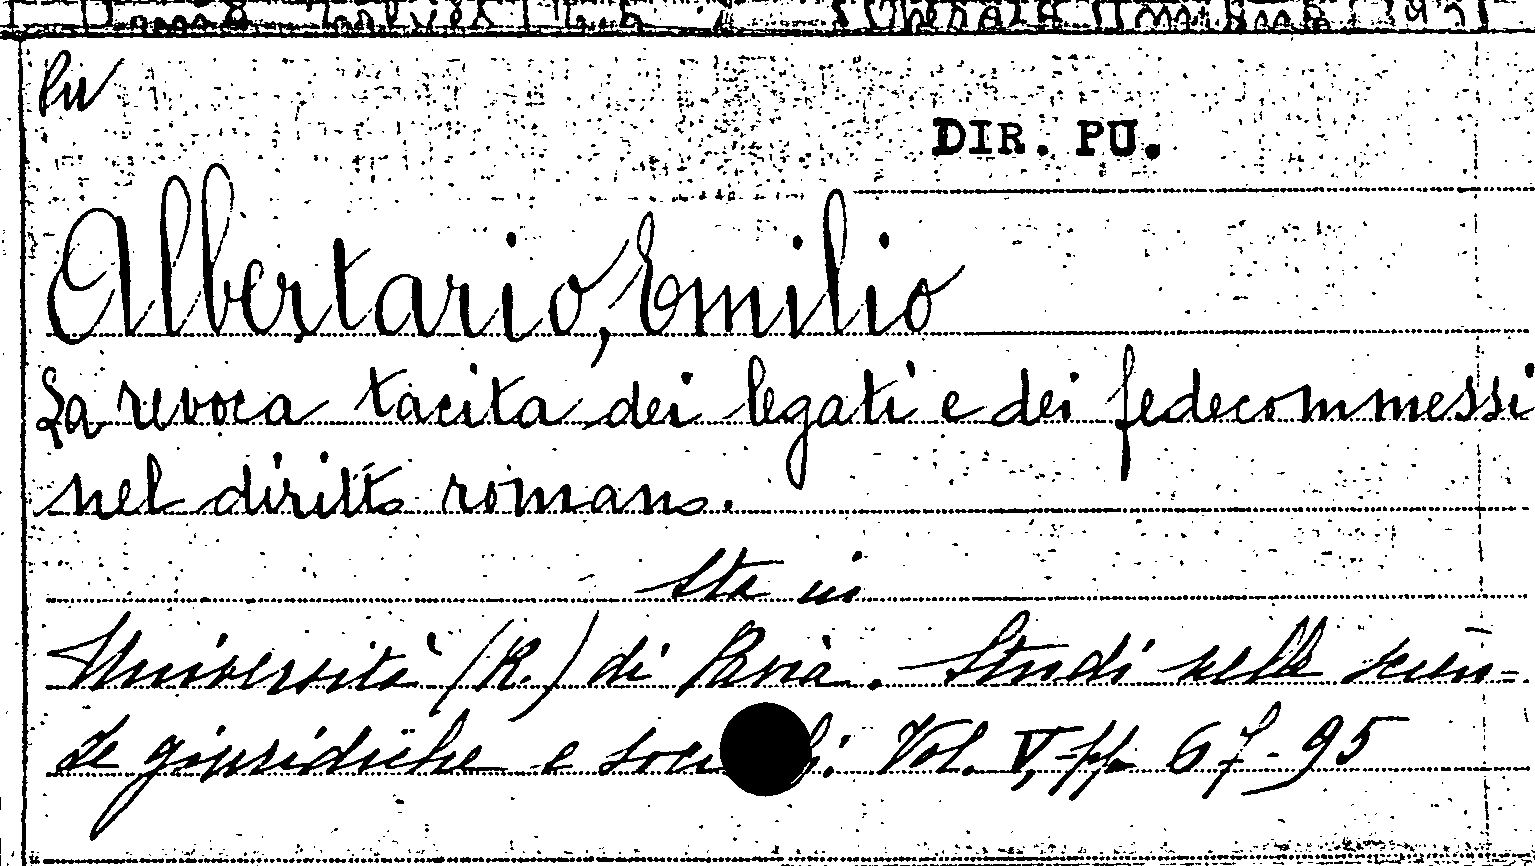 DIR. PU.
Albertario, Emilio
La revoca tacita dei legati e dei fedecommessi
nel diritto romano.
Sta in
Università (R.) di Pavia. Studi nelle scien-
ze giuridiche e sociali: Vol. V, pp. 67-95